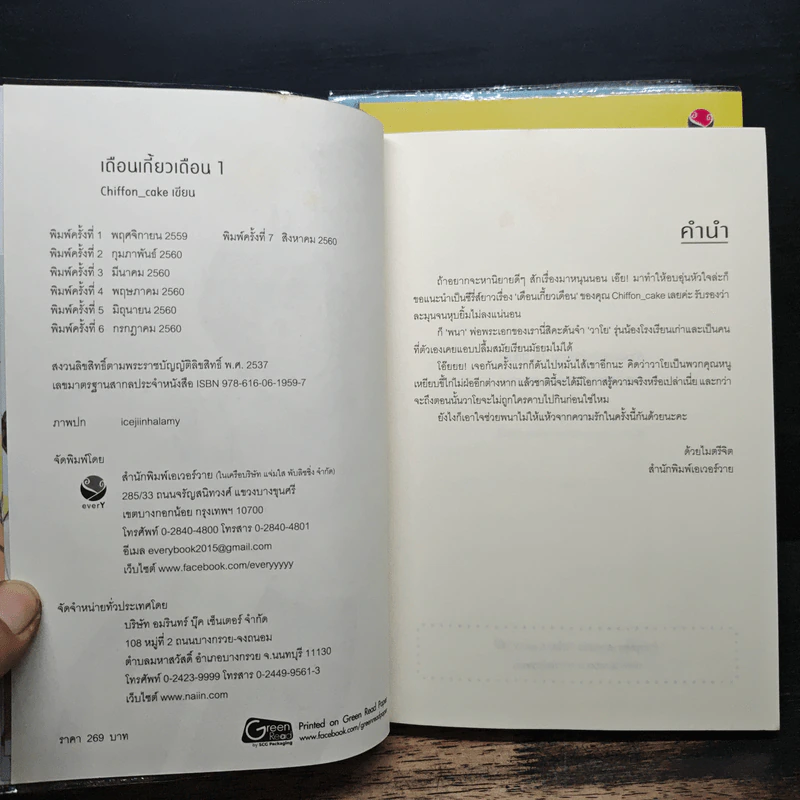 เดือนเกี้ยวเดือน 1
Chiffon_cake เขียน
พิมพ์ครั้งที่ 1 พฤศจิกายน 2559
พิมพ์ครั้งที่ 2 กุมภาพันธ์ 2560
พิมพ์ครั้งที่ 3 มีนาคม 2560
พิมพ์ครั้งที่ 4 พฤษภาคม 2560
พิมพ์ครั้งที่ 5 มิถุนายน 2560
พิมพ์ครั้งที่ 6 กรกฎาคม 2560
พิมพ์ครั้งที่ 7 สิงหาคม 2560
สงวนลิขสิทธิ์ตามพระราชบัญญัติลิขสิทธิ์ พ.ศ. 2537
เลขมาตรฐานสากลประจำหนังสือ ISBN 978-616-06-1959-7
ภาพปก icejiinhalamy
จัดพิมพ์โดย
everY
สำนักพิมพ์เอเวอร์วาย (ในเครือบริษัท แจ่มใส พับลิชชิ่ง จำกัด)
285/33 ถนนจรัญสนิทวงศ์ แขวงบางขุนศรี
เขตบางกอกน้อย กรุงเทพฯ 10700
โทรศัพท์ 0-2840-4800 โทรสาร 0-2840-4801
อีเมล everybook2015@gmail.com
เว็บไซต์ www.facebook.com/everyyyyy
จัดจำหน่ายทั่วประเทศโดย
บริษัท อมรินทร์ บุ๊ค เซ็นเตอร์ จำกัด
108 หมู่ที่ 2 ถนนบางกรวย-จงถนอม
ตำบลมหาสวัสดิ์ อำเภอบางกรวย จ.นนทบุรี 11130
โทรศัพท์ 0-2423-9999 โทรสาร 0-2449-9561-3
เว็บไซต์ www.naiin.com
ราคา 269 บาท
Green Read
by SCG Packaging
Printed on Green Read Paper
www.facebook.com/greenreadpaper
คำนำ
ถ้าอยากจะหานิยายดีๆ สักเรื่องมาหนุนนอน เอ๊ย! มาทำให้อบอุ่นหัวใจล่ะก็
ขอแนะนำเป็นซีรี่ส์ยาวเรื่อง 'เดือนเกี้ยวเดือน' ของคุณ Chiffon_cake เลยค่ะ รับรองว่า
ละมุนจนหุบยิ้มไม่ลงแน่นอน
ก็ 'พนา' พ่อพระเอกของเรานี่สิคะดันจำ 'วาโย' รุ่นน้องโรงเรียนเก่าและเป็นคน
ที่ตัวเองเคยแอบปลื้มสมัยเรียนมัธยมไม่ได้
โอ๊ยยย! เจอกันครั้งแรกก็ดันไปหมั่นไส้เขาอีกนะ คิดว่าวาโยเป็นพวกคุณหนู
เหยียบขี้ไก่ไม่ฝ่ออีกต่างหาก แล้วชาตินี้จะได้มีโอกาสรู้ความจริงหรือเปล่าเนี่ย และกว่า
จะถึงตอนนั้นวาโยจะไม่ถูกใครคาบไปกินก่อนใช่ไหม
ยังไงก็เอาใจช่วยพนาไม่ให้แห้วจากความรักในครั้งนี้กันด้วยนะคะ
ด้วยไมตรีจิต
สำนักพิมพ์เอเวอร์วาย